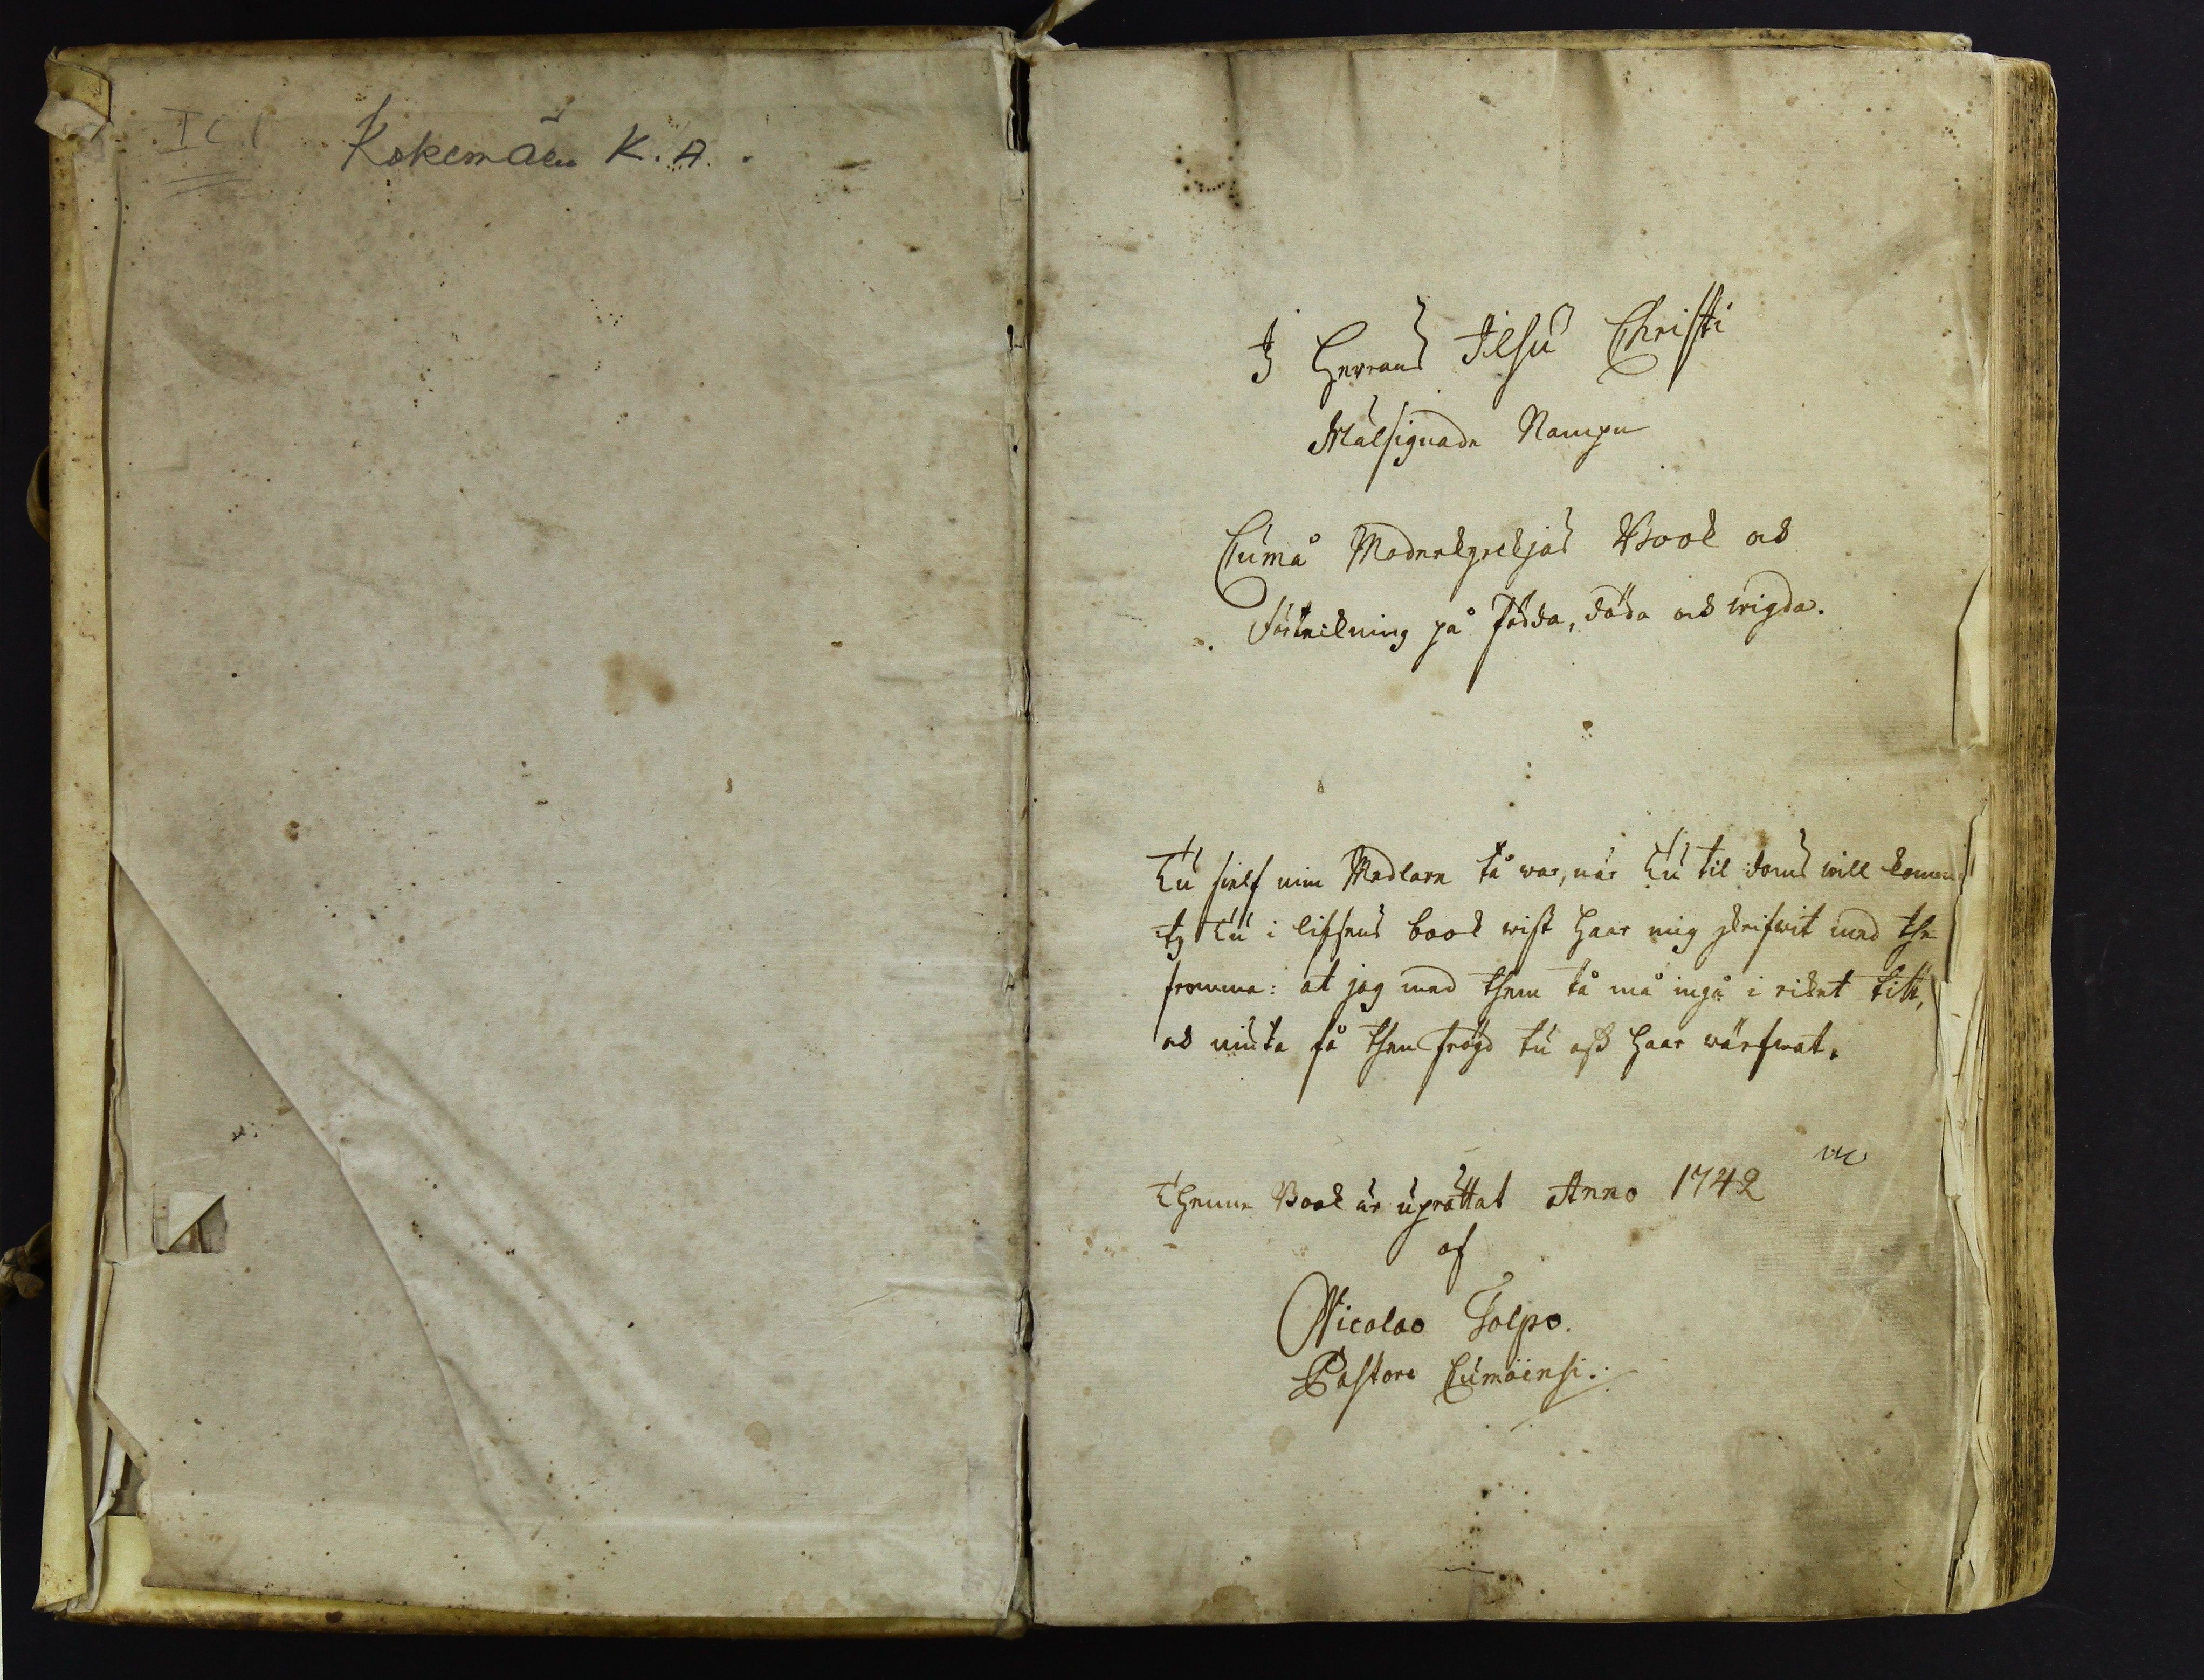 I C 1
Kokemäen K. A.
I Herrans JEsu Christi
Wälsignade Nampn
Cumå Moderkyrckjas Book och
Förtekning på Födda, döda och wigda.
Tu sielf min Medlare tå war, när Tu til doms will komma
ty Tu i lifsens book wist haar mig skrifwit med the
fromma: at jag med them tå må ingå i riket titt,
och niuta få then frögd tu oss haar wärfwat.
Thenne Book är uprättat Anno 1742
af
Nicolao Polpo.
Pastore Cumöensi.